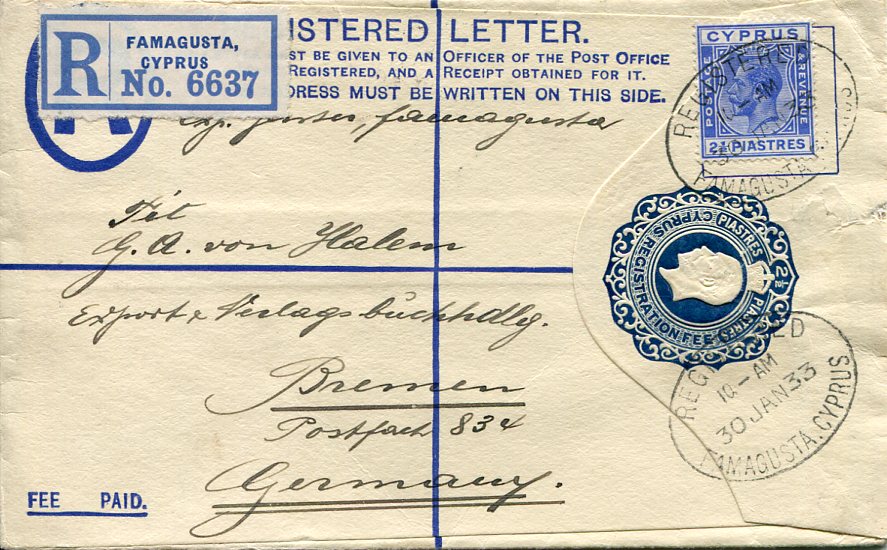 R
FAMAGUSTA,
CYPRUS
No. 6637
ISTERED LETTER.
ST BE GIVEN TO AN OFFICER OF THE POST OFFICE
REGISTERED, AND A RECEIPT OBTAINED FOR IT.
DRESS MUST BE WRITTEN ON THIS SIDE.
CYPRUS
POSTAGE
& REVENUE
2½ PIASTRES
REGISTERED
10-AM
FAMAGUSTA
Famagusta
G. A. von Halem
Export & Verlagsbuchhdlg.
Bremen
Postfach 834
Germany.
CYPRUS REGISTRATION FEE
2½ PIASTRES
PIASTRES
REG ED
10-AM
30 JAN 33
FAMAGUSTA. CYPRUS
FEE PAID.